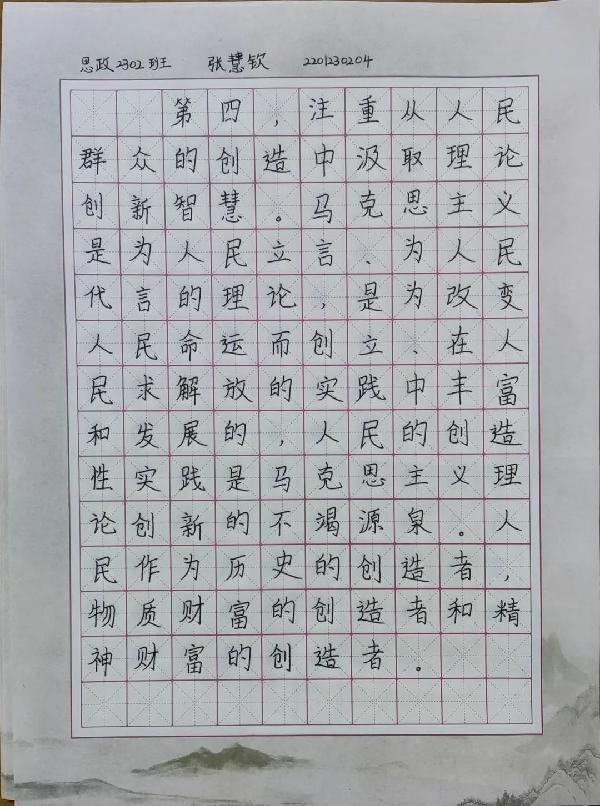 思政2302班 张慧钦 2201230204
第四，注重从人民
群众的创造中汲取理论
创新智慧。马克思主义
是为人民立言、为人民
代言的理论，是为改变
人民命运而创立、在人
民求解放的实践中丰富
和发展的，人民的创造
性实践是马克思主义理
论创新的不竭源泉。人
民作为历史的创造者，
物质财富的创造者和精
神财富的创造者。